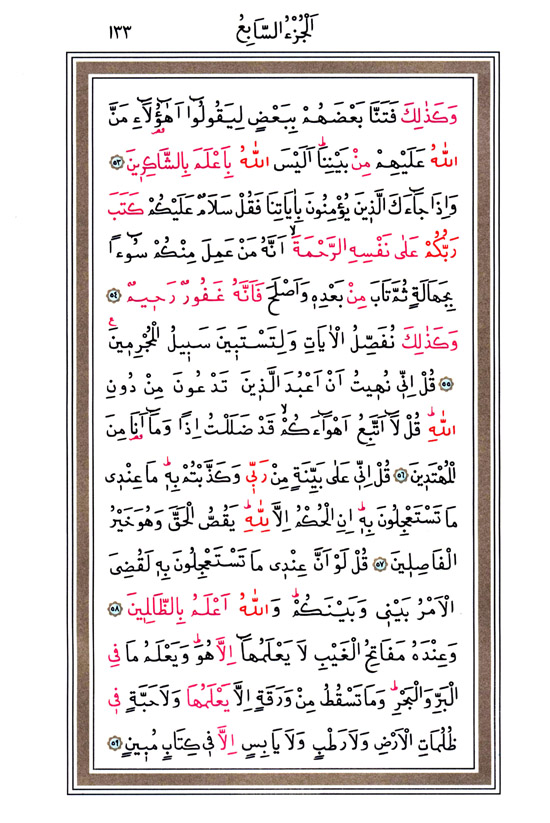 اَلْجُزْءُ السَّابِعُ
١٣٣
وَكَذٰلِكَ فَتَنَّا بَعْضَهُمْ بِبَعْضٍ لِيَقُولُٓوا اَهٰٓؤُ۬لَٓاءِ مَنَّ
اللّٰهُ عَلَيْهِمْ مِنْ بَيْنِنَاۜ اَلَيْسَ اللّٰهُ بِاَعْلَمَ بِالشَّاكِر۪ينَ ﴿٥٣﴾
وَاِذَا جَٓاءَكَ الَّذ۪ينَ يُؤْمِنُونَ بِاٰيَاتِنَا فَقُلْ سَلَامٌ عَلَيْكُمْ كَتَبَ
رَبُّكُمْ عَلٰى نَفْسِهِ الرَّحْمَةَۙ اَنَّهُ مَنْ عَمِلَ مِنْكُمْ سُٓوءاً
بِجَهَالَةٍ ثُمَّ تَابَ مِنْ بَعْدِه۪ وَاَصْلَحَ فَاَنَّهُ غَفُورٌ رَح۪يمٌ ﴿٥٤﴾
وَكَذٰلِكَ نُفَصِّلُ الْاٰيَاتِ وَلِتَسْتَب۪ينَ سَب۪يلُ الْمُجْرِم۪ينَ۟
﴿٥٥﴾ قُلْ اِنّ۪ي نُه۪يتُ اَنْ اَعْبُدَ الَّذ۪ينَ تَدْعُونَ مِنْ دُونِ
اللّٰهِۜ قُلْ لَٓا اَتَّبِعُ اَهْوَٓاءَكُمْۙ قَدْ ضَلَلْتُ اِذاً وَمَٓا اَنَا۬ مِنَ
الْمُهْتَد۪ينَ ﴿٥٦﴾ قُلْ اِنّ۪ي عَلٰى بَيِّنَةٍ مِنْ رَبّ۪ي وَكَذَّبْتُمْ بِه۪ۜ مَا عِنْد۪ي
مَا تَسْتَعْجِلُونَ بِه۪ۜ اِنِ الْحُكْمُ اِلَّا لِلّٰهِۜ يَقُصُّ الْحَقَّ وَهُوَ خَيْرُ
الْفَاصِل۪ينَ ﴿٥٧﴾ قُلْ لَوْ اَنَّ عِنْد۪ي مَا تَسْتَعْجِلُونَ بِه۪ لَقُضِيَ
الْاَمْرُ بَيْن۪ي وَبَيْنَكُمْۜ وَاللّٰهُ اَعْلَمُ بِالظَّالِم۪ينَ ﴿٥٨﴾
وَعِنْدَهُ مَفَاتِحُ الْغَيْبِ لَا يَعْلَمُهَٓا اِلَّا هُوَۜ وَيَعْلَمُ مَا فِي
الْبَرِّ وَالْبَحْرِۜ وَمَا تَسْقُطُ مِنْ وَرَقَةٍ اِلَّا يَعْلَمُهَا وَلَا حَبَّةٍ ف۪ي
ظُلُمَاتِ الْاَرْضِ وَلَا رَطْبٍ وَلَا يَابِسٍ اِلَّا ف۪ي كِتَابٍ مُب۪ينٍ ﴿٥٩﴾